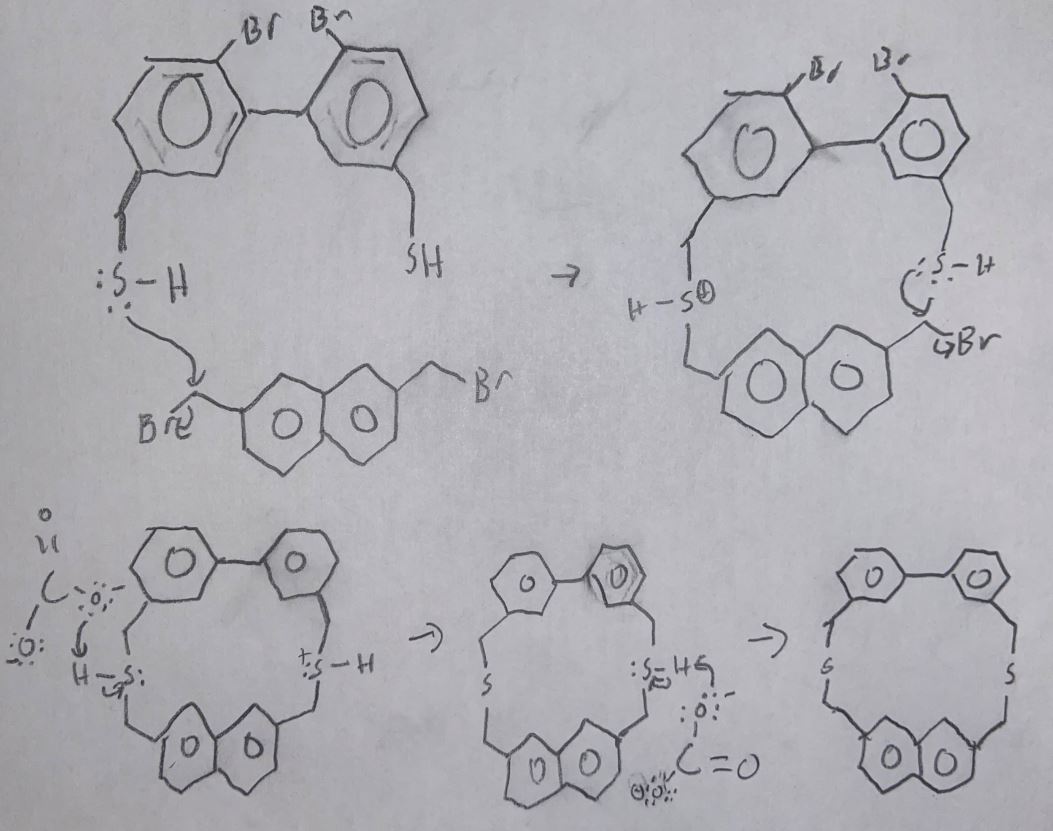 Br Br
:S-H SH
Br Br
→
Br Br
H-S⊕ :S-H
Br
O
C O
O
H-S: +:S-H
→
S :S-H
O
C=O
⊖O
→
S S